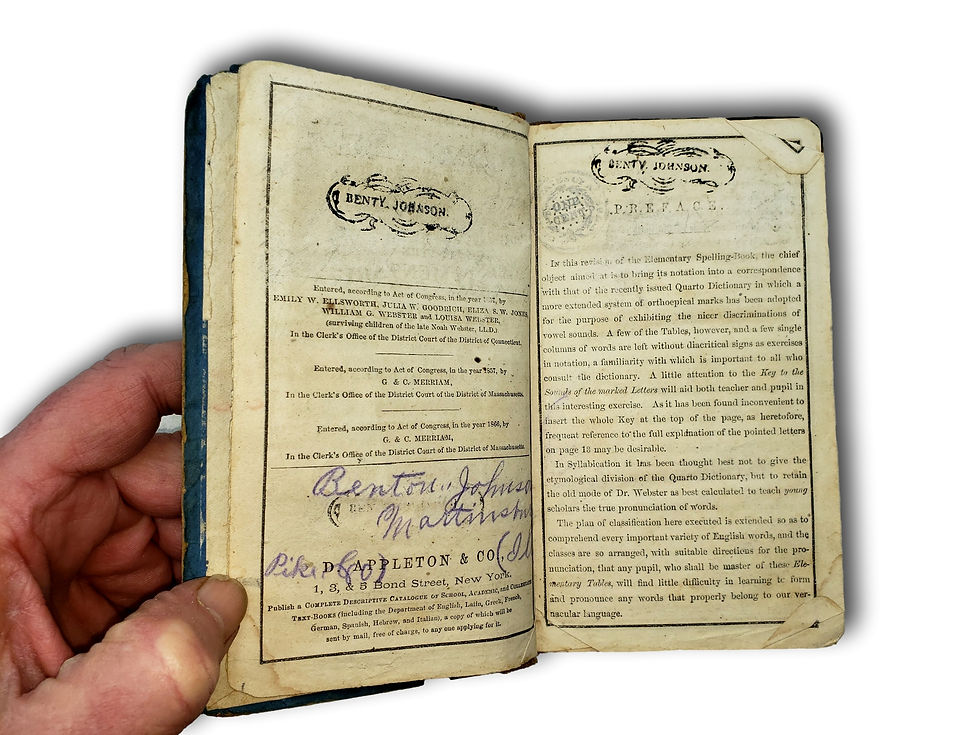 BENTY. JOHNSON.
Entered, according to Act of Congress, in the year 1857, by
EMILY W. ELLSWORTH, JULIA W. GOODRICH, ELIZA S. W. JONES,
WILLIAM G. WEBSTER and LOUISA WEBSTER,
(surviving children of the late Noah Webster, LL.D.)
In the Clerk's Office of the District Court of the District of Connecticut.
Entered, according to Act of Congress, in the year 1857, by
G. & C. MERRIAM,
In the Clerk's Office of the District Court of the District of Massachusetts.
Entered, according to Act of Congress, in the year 1866, by
G. & C. MERRIAM,
In the Clerk's Office of the District Court of the District of Massachusetts.
Benton Johnso
BEN
Martinsbu
D. APPLETON & CO.
Pike Co)
(Ill
1, 3, & 5 Bond Street, New York.
Publish a COMPLETE DESCRIPTIVE CATALOGUE OF SCHOOL, ACADEMIC, and COLLEGIATE
TEXT-BOOKS (including the Department of English, Latin, Greek, French,
German, Spanish, Hebrew, and Italian), a copy of which will be
sent by mail, free of charge, to any one applying for it.
BENTY. JOHNSON.
ONE
CENT
PREFACE.
In this revision of the Elementary Spelling-Book, the chief
object aimed at is to bring its notation into a correspondence
with that of the recently issued Quarto Dictionary in which a
more extended system of orthoepical marks has been adopted
for the purpose of exhibiting the nicer discriminations of
vowel sounds. A few of the Tables, however, and a few single
columns of words are left without diacritical signs as exercises
in notation, a familiarity with which is important to all who
consult the dictionary. A little attention to the Key to the
Sounds of the marked Letters will aid both teacher and pupil in
this interesting exercise. As it has been found inconvenient to
insert the whole Key at the top of the page, as heretofore,
frequent reference to the full explanation of the pointed letters
on page 13 may be desirable.
In Syllabication it has been thought best not to give the
etymological division of the Quarto Dictionary, but to retain
the old mode of Dr. Webster as best calculated to teach young
scholars the true pronunciation of words.
The plan of classification here executed is extended so as to
comprehend every important variety of English words, and the
classes are so arranged, with suitable directions for the pro-
nunciation, that any pupil, who shall be master of these Ele-
mentary Tables, will find little difficulty in learning to form
and pronounce any words that properly belong to our ver-
nacular language.